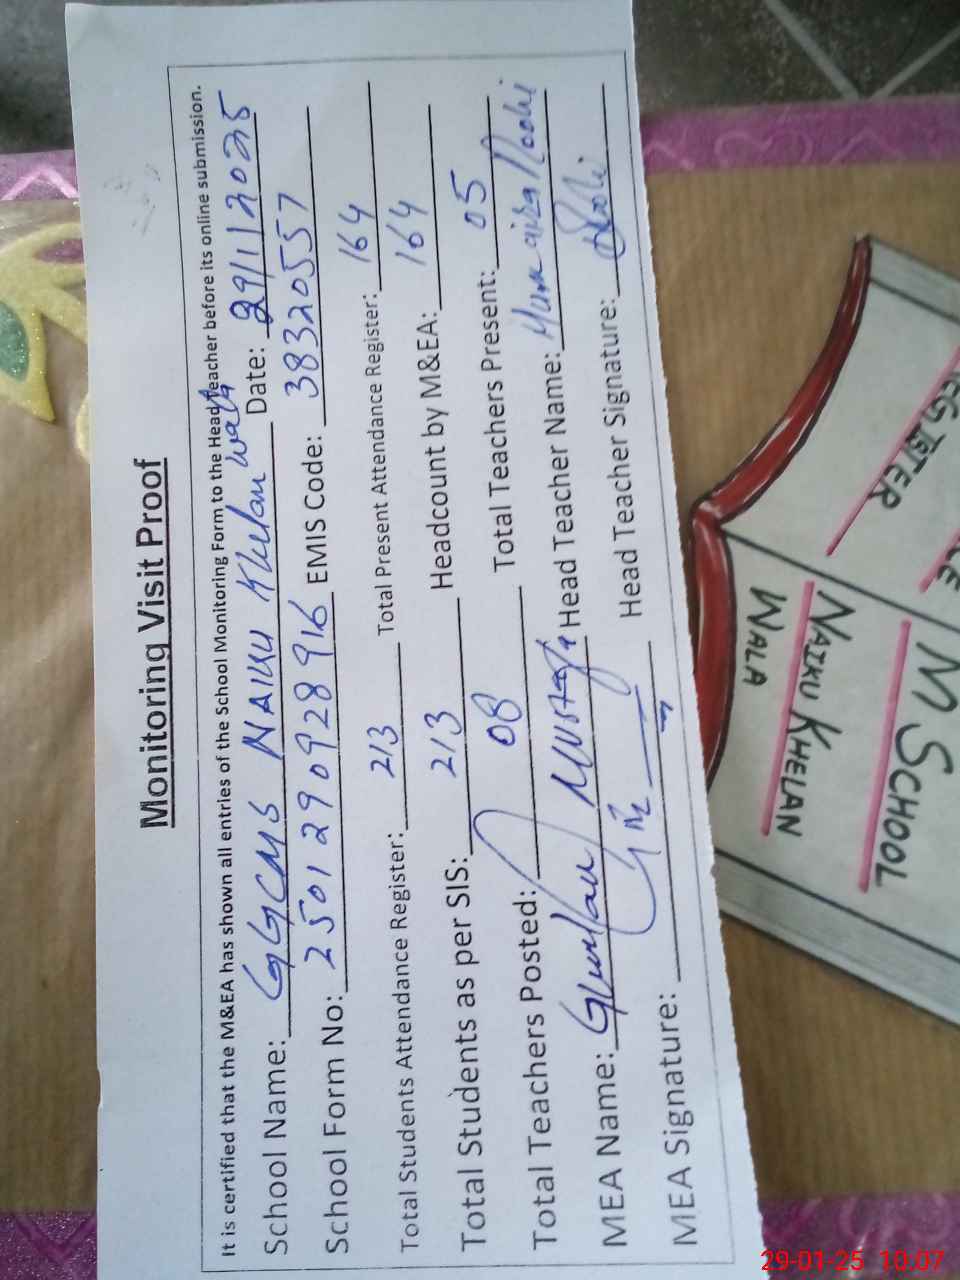 Monitoring Visit Proof
It is certified that the M&EA has shown all entries of the School Monitoring Form to the Head Teacher before its online submission.
School Name: GGCMS NAIKU Khelan wala Date: 29/1/2025
School Form No: 2501290928916 EMIS Code: 38320557
Total Students Attendance Register: 213 Total Present Attendance Register: 164
Total Students as per SIS: 213 Headcount by M&EA: 164
Total Teachers Posted: 08 Total Teachers Present: 05
MEA Name: Ghullam Mustafa Head Teacher Name: Humaira Noohi
MEA Signature: Head Teacher Signature:
M SCHOOL
NAIKU KHELAN
WALA
29-01-25 10.07